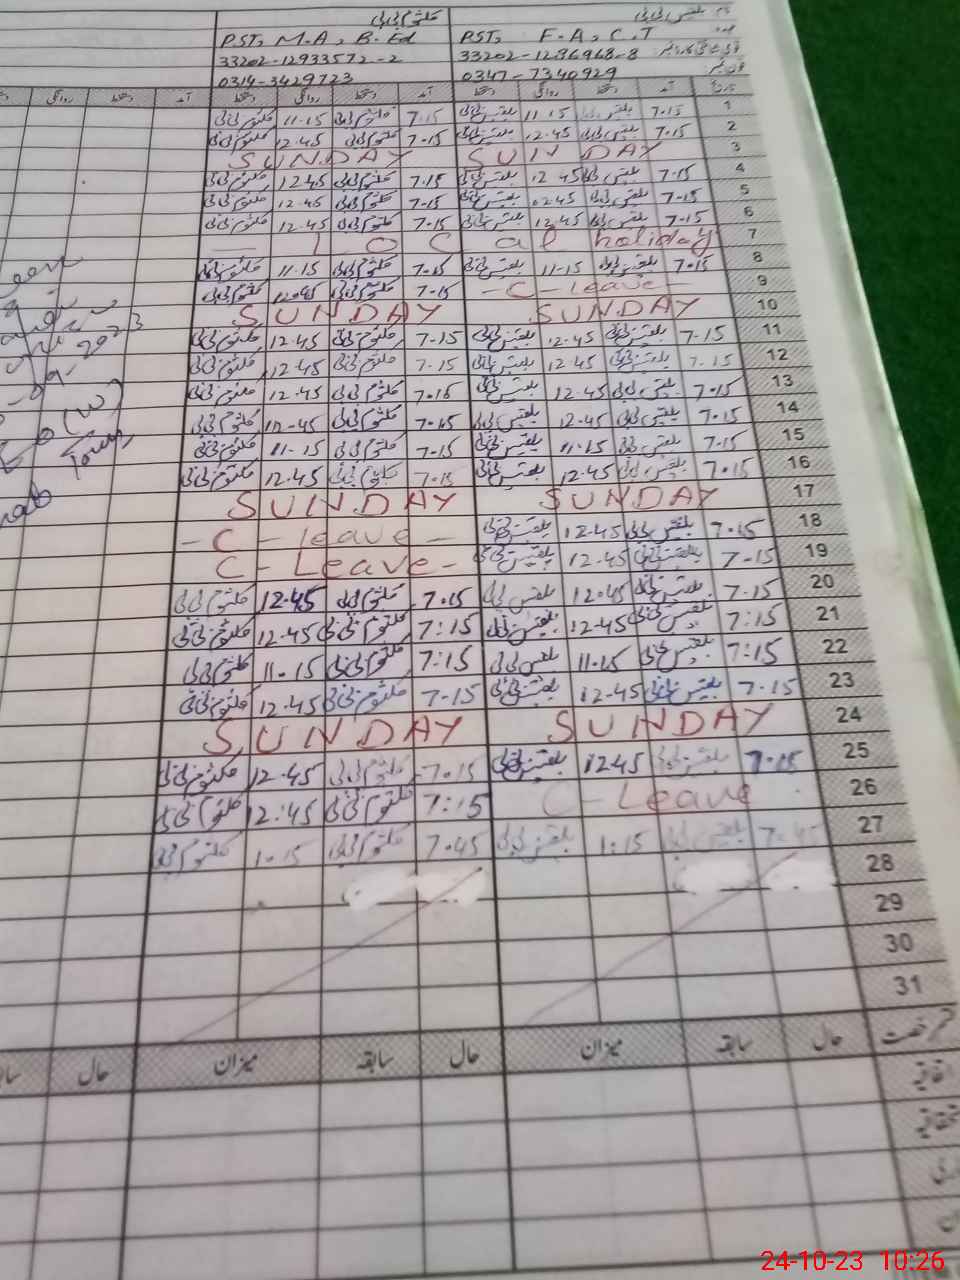 نام بلقیس بی بی کلثوم بی بی
عہدہ PST, F.A, C.T PST, M.A, B.Ed
33202-1286968-8 33202-12933572-2
فون نمبر 0347-7340929 0314-3429723
تاریخ آمد دستخط روانگی دستخط آمد دستخط روانگی دستخط آمد دستخط روانگی
1 7.15 بلقیس بی بی 11.15 بلقیس بی بی 7.15 کلثوم بی بی 11.15 کلثوم بی بی
2 7.15 بلقیس بی بی 12.45 بلقیس بی بی 7.15 کلثوم بی بی 12.45 کلثوم بی بی
3 SUNDAY SUNDAY
4 7.15 بلقیس بی بی 12.45 بلقیس بی بی 7.15 کلثوم بی بی 12.45 کلثوم بی بی
5 7.15 بلقیس بی بی 12.45 بلقیس بی بی 7.15 کلثوم بی بی 12.45 کلثوم بی بی
6 7.15 بلقیس بی بی 12.45 بلقیس بی بی 7.15 کلثوم بی بی 12.45 کلثوم بی بی
7 — L O C al holiday
8 7.15 بلقیس بی بی 11-15 بلقیس بی بی 7.15 کلثوم بی بی 11.15 کلثوم بی بی
9 -C-leave- 7.15 کلثوم بی بی 12.45 کلثوم بی بی
10 SUNDAY SUNDAY
11 7-15 بلقیس بی بی 12.45 بلقیس بی بی 7-15 کلثوم بی بی 12.45 کلثوم بی بی
12 7.15 بلقیس بی بی 12.45 بلقیس بی بی 7.15 کلثوم بی بی 12.45 کلثوم بی بی
13 7.15 بلقیس بی بی 12.45 بلقیس بی بی 7.15 کلثوم بی بی 12.45 کلثوم بی بی
14 7.15 بلقیس بی بی 12.45 بلقیس بی بی 7.15 کلثوم بی بی 12-45 کلثوم بی بی
15 7.15 بلقیس بی بی 11.15 بلقیس بی بی 7-15 کلثوم بی بی 11-15 کلثوم بی بی
16 7.15 بلقیس بی بی 12.45 بلقیس بی بی 7.15 کلثوم بی بی 12.45 کلثوم بی بی
17 SUNDAY SUNDAY
18 7.15 بلقیس بی بی 12.45 بلقیس بی بی -C-leave-
19 7-15 بلقیس بی بی 12.45 بلقیس بی بی C-Leave-
20 7.15 بلقیس بی بی 12.45 بلقیس بی بی 7.15 کلثوم بی بی 12.45 کلثوم بی بی
21 7:15 بلقیس بی بی 12.45 بلقیس بی بی 7:15 کلثوم بی بی 12.45 کلثوم بی بی
22 7:15 بلقیس بی بی 11.15 بلقیس بی بی 7:15 کلثوم بی بی 11.15 کلثوم بی بی
23 7.15 بلقیس بی بی 12.45 بلقیس بی بی 7-15 کلثوم بی بی 12.45 کلثوم بی بی
24 SUNDAY SUNDAY
25 7.15 بلقیس بی بی 12.45 بلقیس بی بی 7.15 کلثوم بی بی 12.45 کلثوم بی بی
26 C-Leave 7:15 کلثوم بی بی 12:45 کلثوم بی بی
27 7.45 بلقیس بی بی 1:15 بلقیس بی بی 7.45 کلثوم بی بی 1.15 کلثوم بی بی
28
29
30
31
قسم رخصت حال سابقہ میزان حال سابقہ میزان حال
اتفاقیہ
استحقاقیہ
24-10-23 10:26